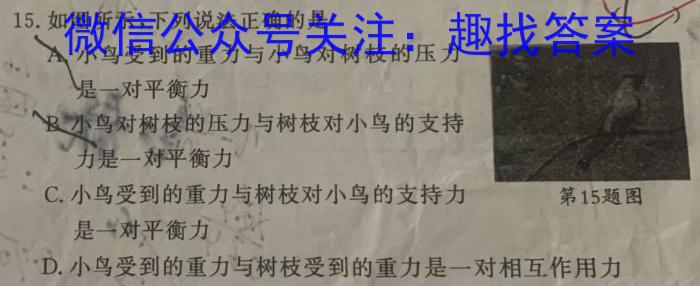 15. 如图所示,下列说法正确的是
微信公众号关注：趣找答案
A. 小鸟受到的重力与小鸟对树枝的压力
是一对平衡力
B. 小鸟对树枝的压力与树枝对小鸟的支持
力是一对平衡力
C. 小鸟受到的重力与树枝对小鸟的支持力
是一对平衡力
第15题图
D. 小鸟受到的重力与树枝受到的重力是一对相互作用力